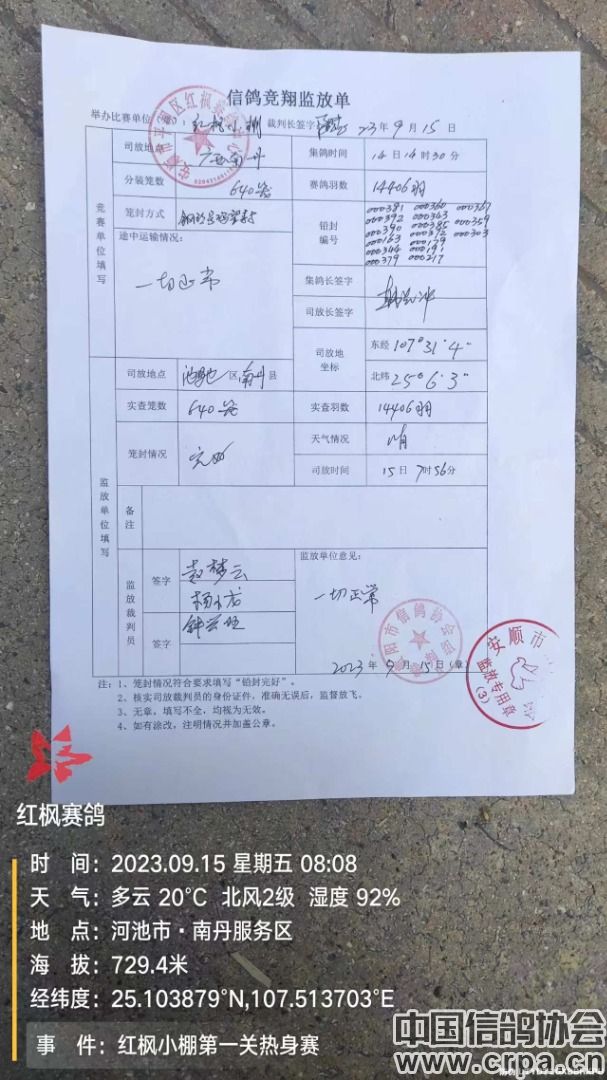 信鸽竞翔监放单
举办比赛单位 红枫小棚 裁判长签字 23年9月15日
竞赛单位填写
司放地点 广西南丹 集鸽时间 14日14时30分
分装笼数 640笼 赛鸽羽数 14406羽
笼封方式 铅封
编号
000381 000360 000367
000392 000343
000390 000385 000359
000163 000372 000303
000344 000179
000379 000191
000217
途中运输情况:
一切正常
集鸽长签字
司放长签字
司放地
坐标
东经 107°31′4″
北纬 25°6′3″
监放单位填写
司放地点 河池区南丹县
实查笼数 640笼 实查羽数 14406羽
笼封情况 完好 天气情况 晴
司放时间 15日7时56分
备注
监放裁判员
签字
签字
监放单位意见:
一切正常
2023年9月15日(章)
注:1、笼封情况符合要求填写“铅封完好”。
2、核实司放裁判员的身份证件,准确无误后,监督放飞。
3、无章,填写不全,均视为无效。
4、如有涂改,注明情况并加盖公章。
安顺市
监放专用章
(3)
红枫赛鸽
时 间:2023.09.15 星期五 08:08
天 气:多云 20°C 北风2级 湿度 92%
地 点:河池市·南丹服务区
海 拔:729.4米
经纬度:25.103879°N,107.513703°E
事 件:红枫小棚第一关热身赛
中国信鸽协会
www.crpa.cn